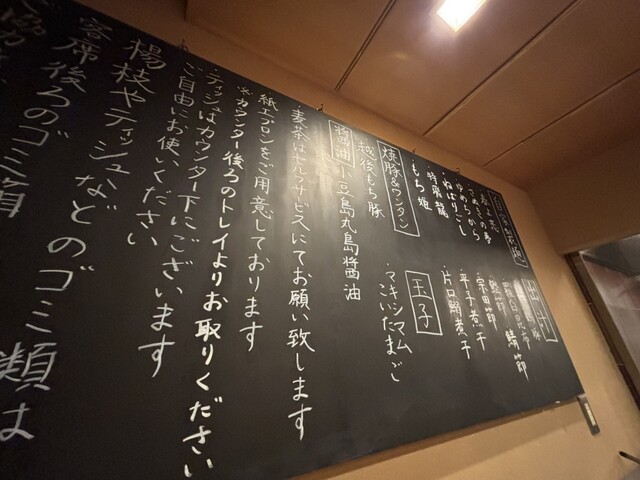 自家製麺
春よ恋
きたほなみ
ゆめちから
ねばりごし
特飛龍
もち姫
出汁
鯖節
宗田節
平子煮干
片口鰯煮干
焼豚&ワンタン
越後もち豚
玉子
・マキシマム
こいたまご
醤油 小豆島丸島醤油
・麦茶はセルフサービスにてお願い致します
紙エプロンをご用意しております
※カウンター後ろのトレイよりお取りください
ティッシュはカウンター下にございます
ご自由にお使いください
楊枝やティッシュなどのゴミ類は
客席後ろのゴミ箱